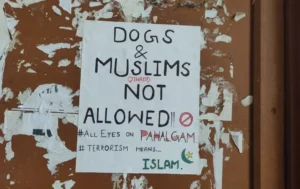 DOGS
&
MUSLIMS
(JIHADI)
NOT
ALLOWED!!
#ALL EYES ON PAHALGAM
# TERRORISM MEANS...
ISLAM.